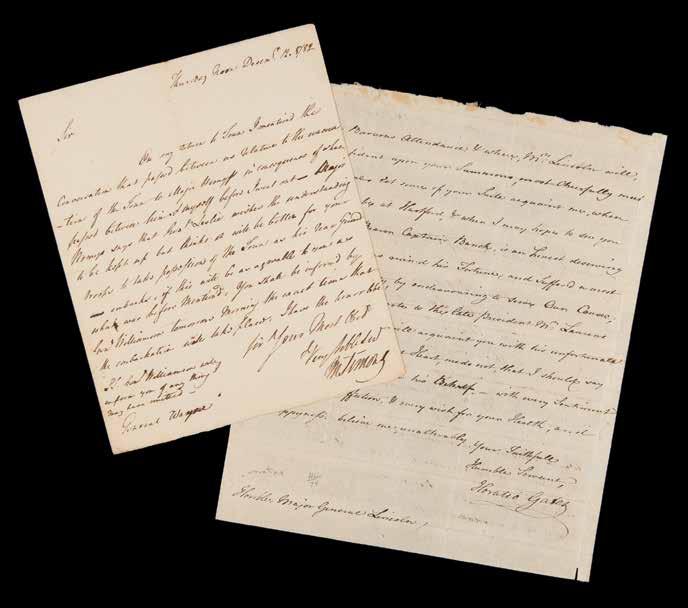 Thursday Noon Decemr. 12. 1782
Sir
On my return to Town I mentiond the
Conversation that passd between us relative to the evacua
-tion of the Town to Major Wemyss in consequence of what
passed between him & myself before I went out — Major
Wemyss says that Genl. Leslie wishes the understanding
to be kept up but thinks it will be better for your
troops to take possession of the Town as his rear Guard
— embarks, if this will be as agreable to you as
what was before Mention'd. You shall be informd by
Genl. Williamson tomorrow Morning the exact time that
the embarkation will take place, I have the honor to be
Sir Yours Most Obdt
& Very
Genl. Williamson will
inform you of any thing I
may have omitted —
General Wayne
Attendance, & where Mrs. Lincoln will,
upon your Summons, most Chearfully meet
some of your Suite acquaint me, when
at Hartford, & when I may hope to see you
Captain is an honest deserving
ruind his Fortune, and Sufferd a most
by endeavouring to serve Our Cause,
to the late President Mr. Laurens
will acquaint you with his unfortunate
Heart needs not that I should say
his Behalf — with every Sentiment
& every wish for your Health, and
believe me, unalterably, Your Faithfull
Humble Servant,
Horatio Gates
Honble. Major General Lincoln,